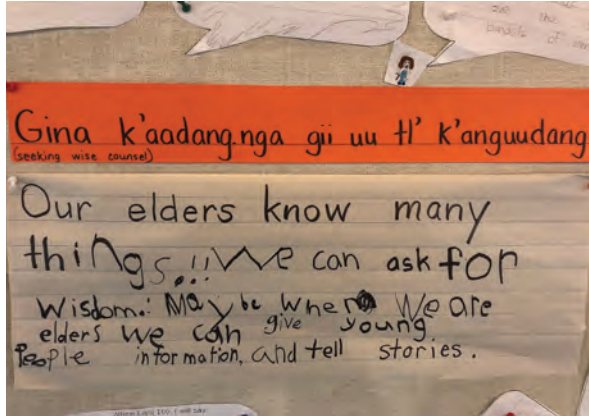 are the
bonds of
Gina k'aadang.nga gii uu tl' k'anguudang
(seeking wise counsel)
Our elders know many
things.!! We can ask for
Wisdom.: May be when We are
elders we can give young
People information, and tell stories.